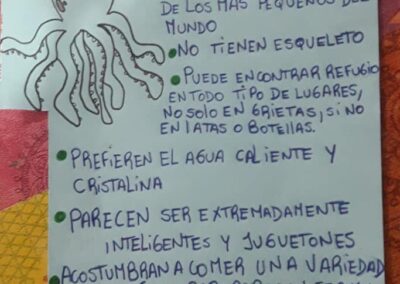 DE LOS MÁS PEQUEÑOS DEL
MUNDO
• NO TIENEN ESQUELETO
• PUEDE ENCONTRAR REFUGIO
EN TODO TIPO DE LUGARES,
NO SOLO EN GRIETAS, SI NO
EN LATAS O BOTELLAS.
• PREFIEREN EL AGUA CALIENTE Y
CRISTALINA
• PARECEN SER EXTREMADAMENTE
INTELIGENTES Y JUGUETONES
• ACOSTUMBRAN A COMER UNA VARIEDAD